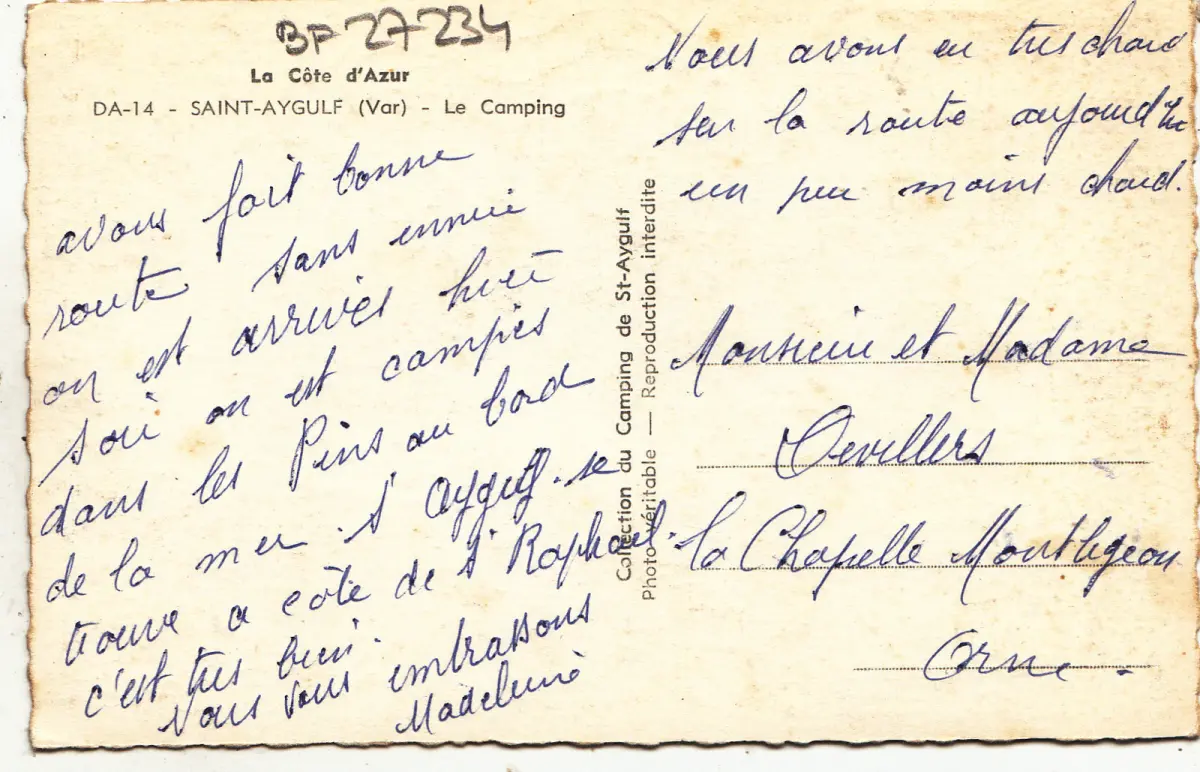 BP 27234
La Côte d'Azur
DA-14 - SAINT-AYGULF (Var) - Le Camping
avons fait bonne
route sans ennuie
on est arrivés hier
soir on est campés
dans les Pins au bord
de la mer. St Aygulf. se
trouve a côté de St Raphael.
c'est tres bien.
Nous vous embrassons
Madeleine
Collection du Camping de St-Aygulf
Photo véritable — Reproduction interdite
Nous avons eu tres chaud
sur la route aujourd'hui
un peu moins chaud.
Monsieur et Madame
la Chapelle Montligeon
Orne.